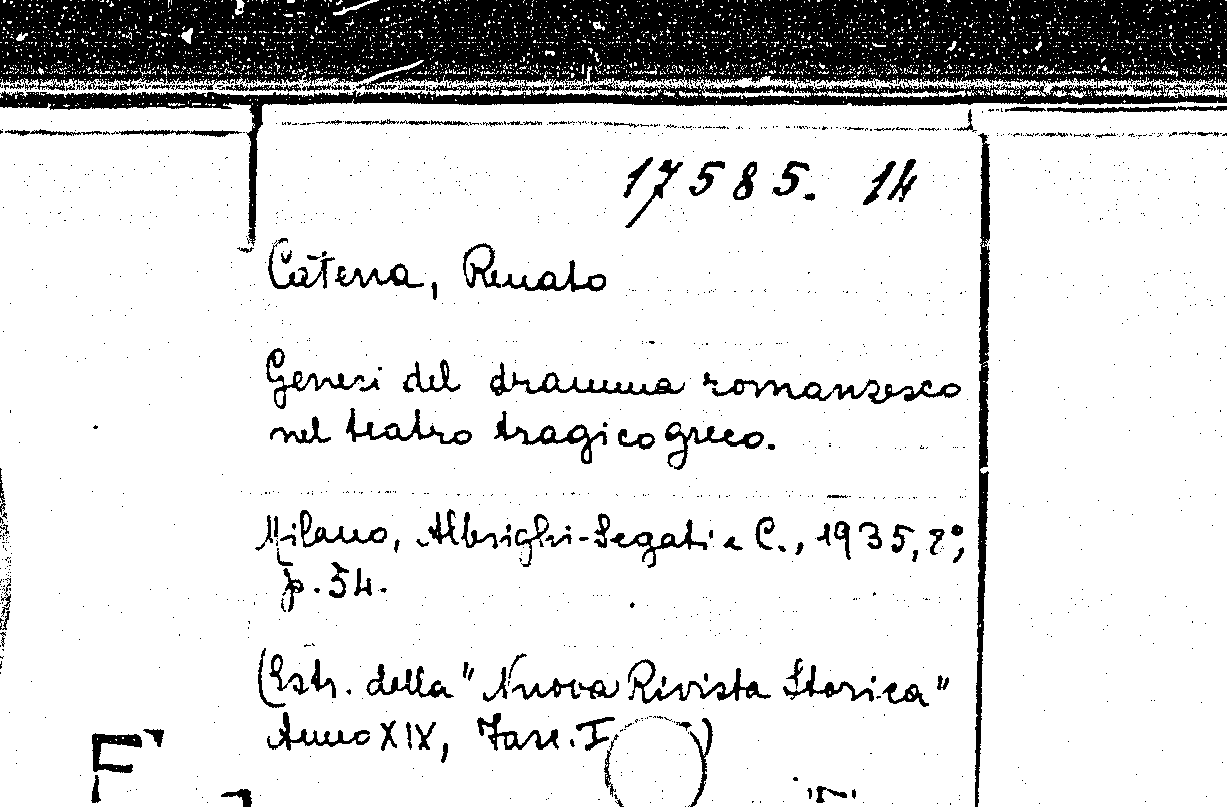 17585. 14
Catena, Renato
Genesi del dramma romanzesco
nel teatro tragico greco.
Milano, Albrighi-Segati e C., 1935, 8°,
p. 54.
(Estr. della "Nuova Rivista Storica"
Anno XIX, Fasc. I )
F